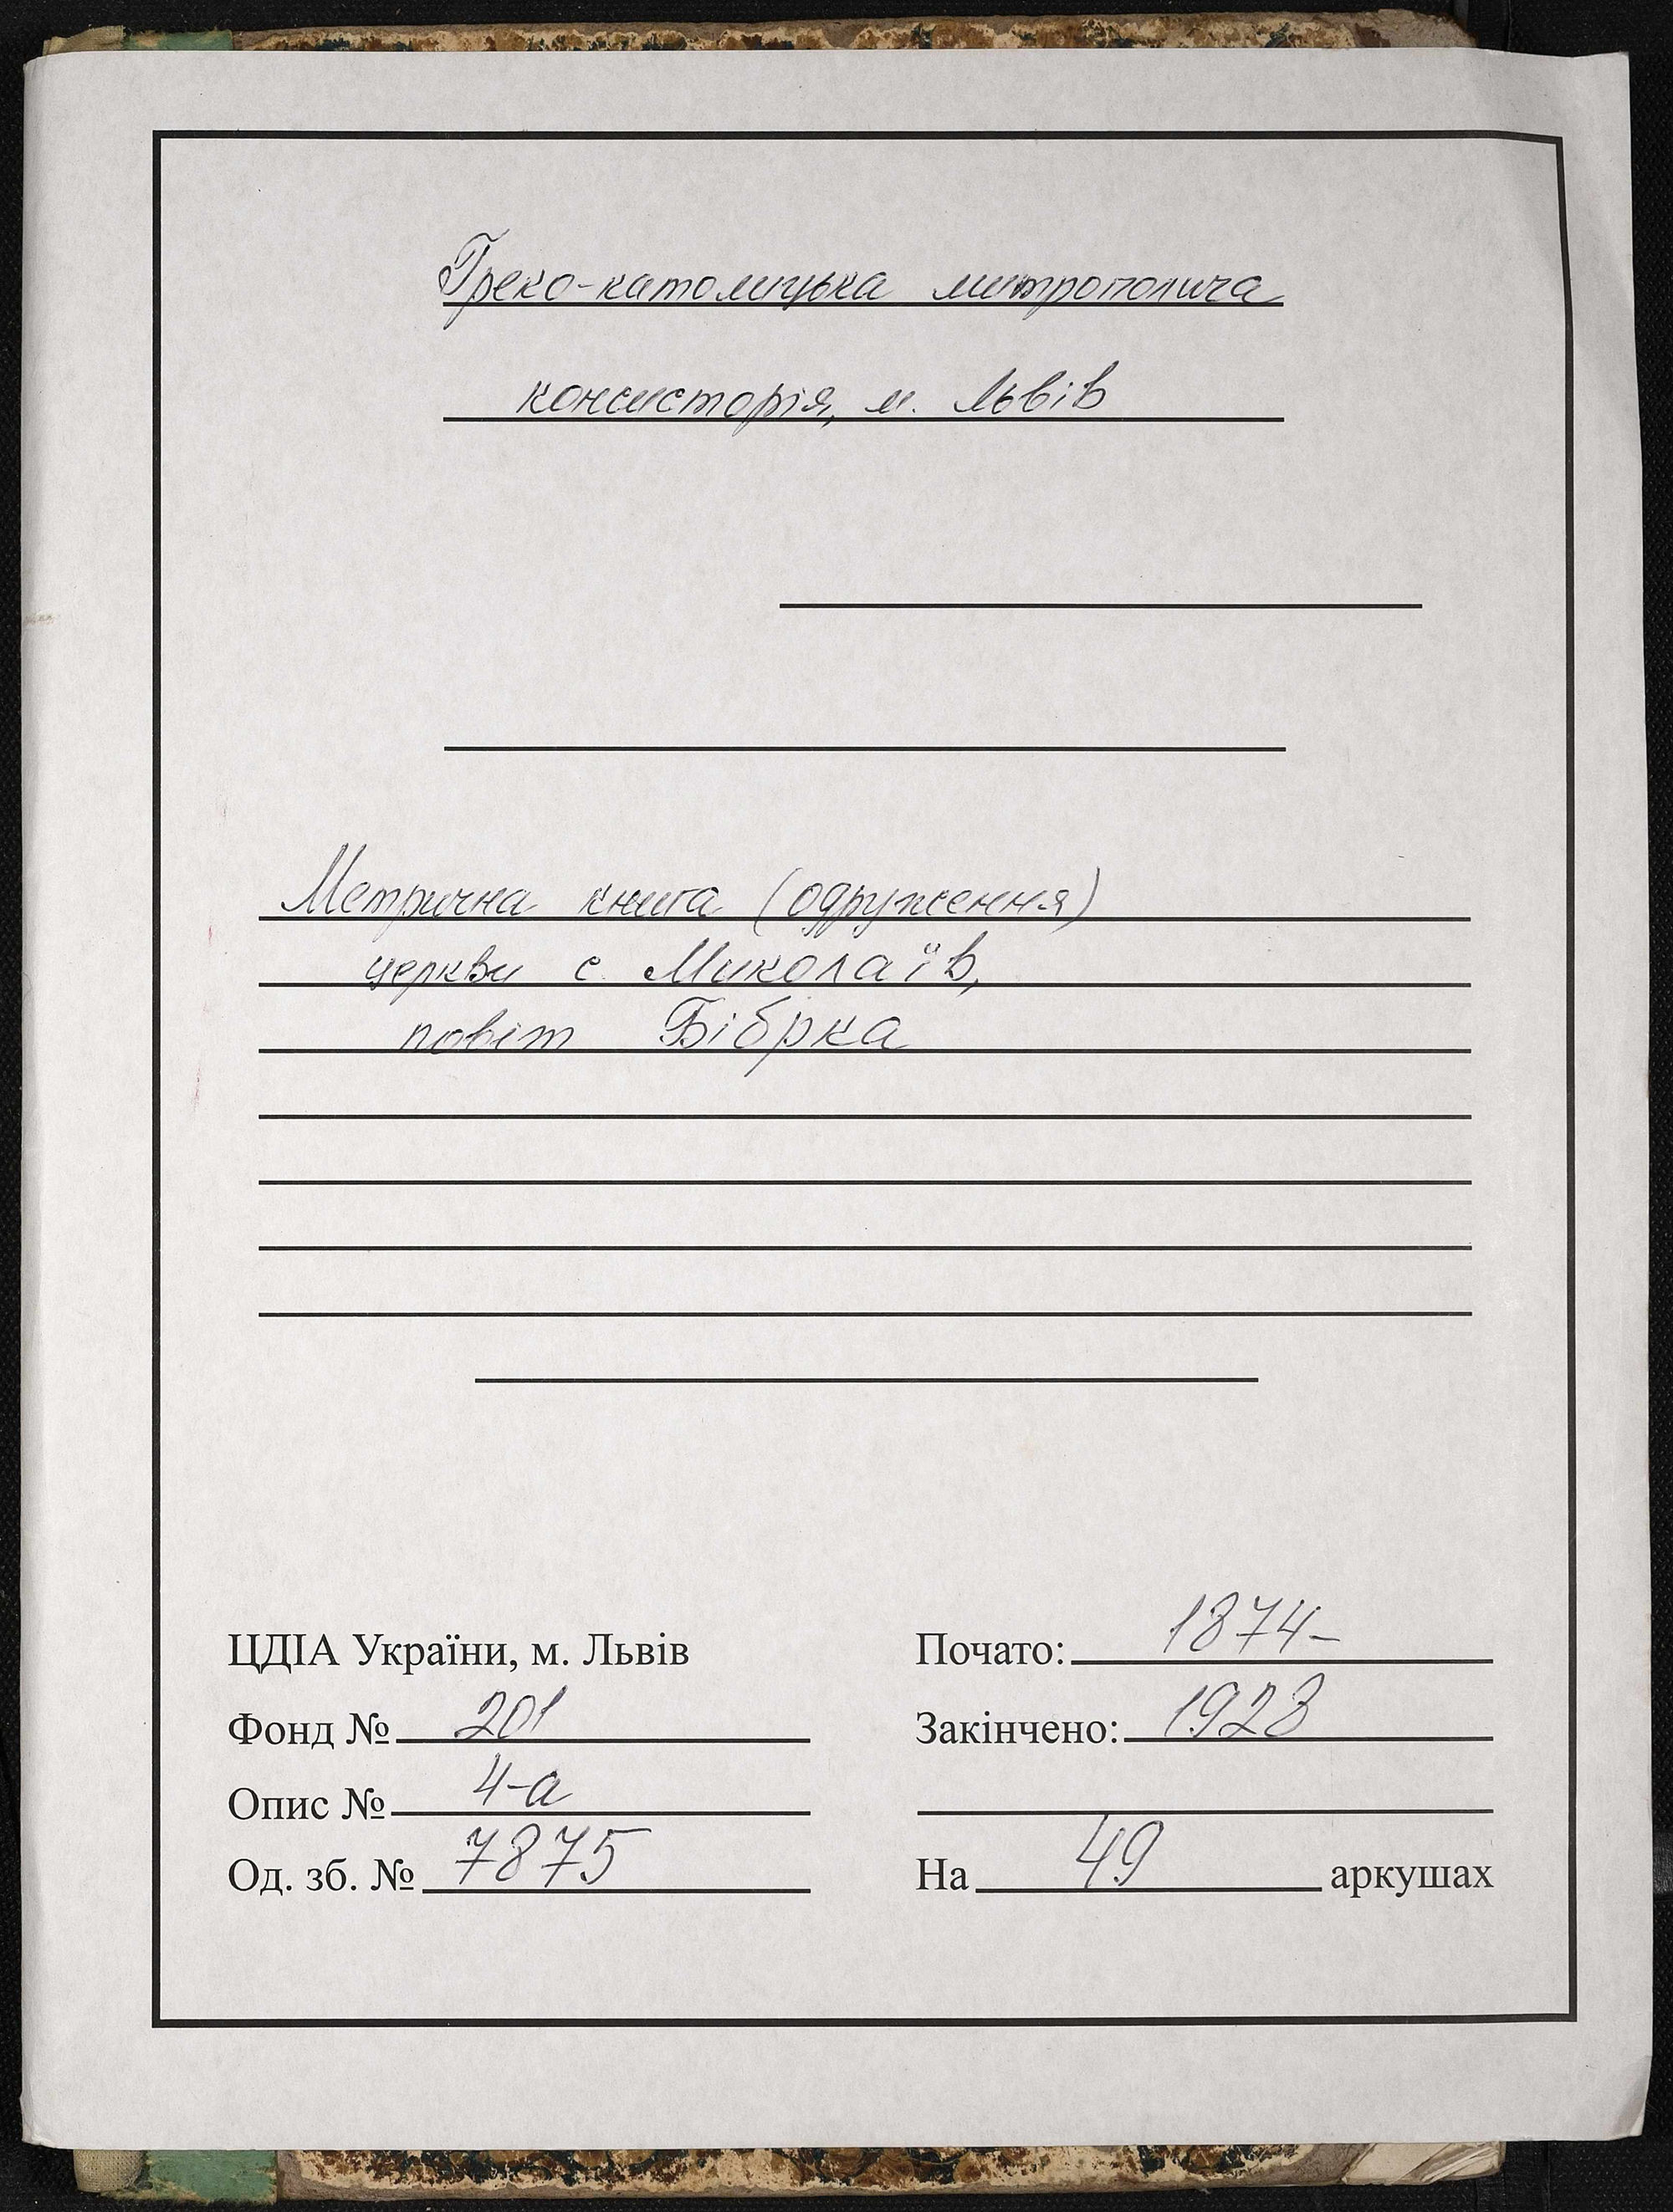 Греко-католицька митрополича
консисторія, м. Львів
Метрична книга (одруження)
церкви с. Миколаїв,
повіт Бібрка
ЦДІА України, м. Львів
Фонд № 201
Опис № 4-а
Од. зб. № 7875
Почато: 1874-
Закінчено: 1928
На 49 аркушах